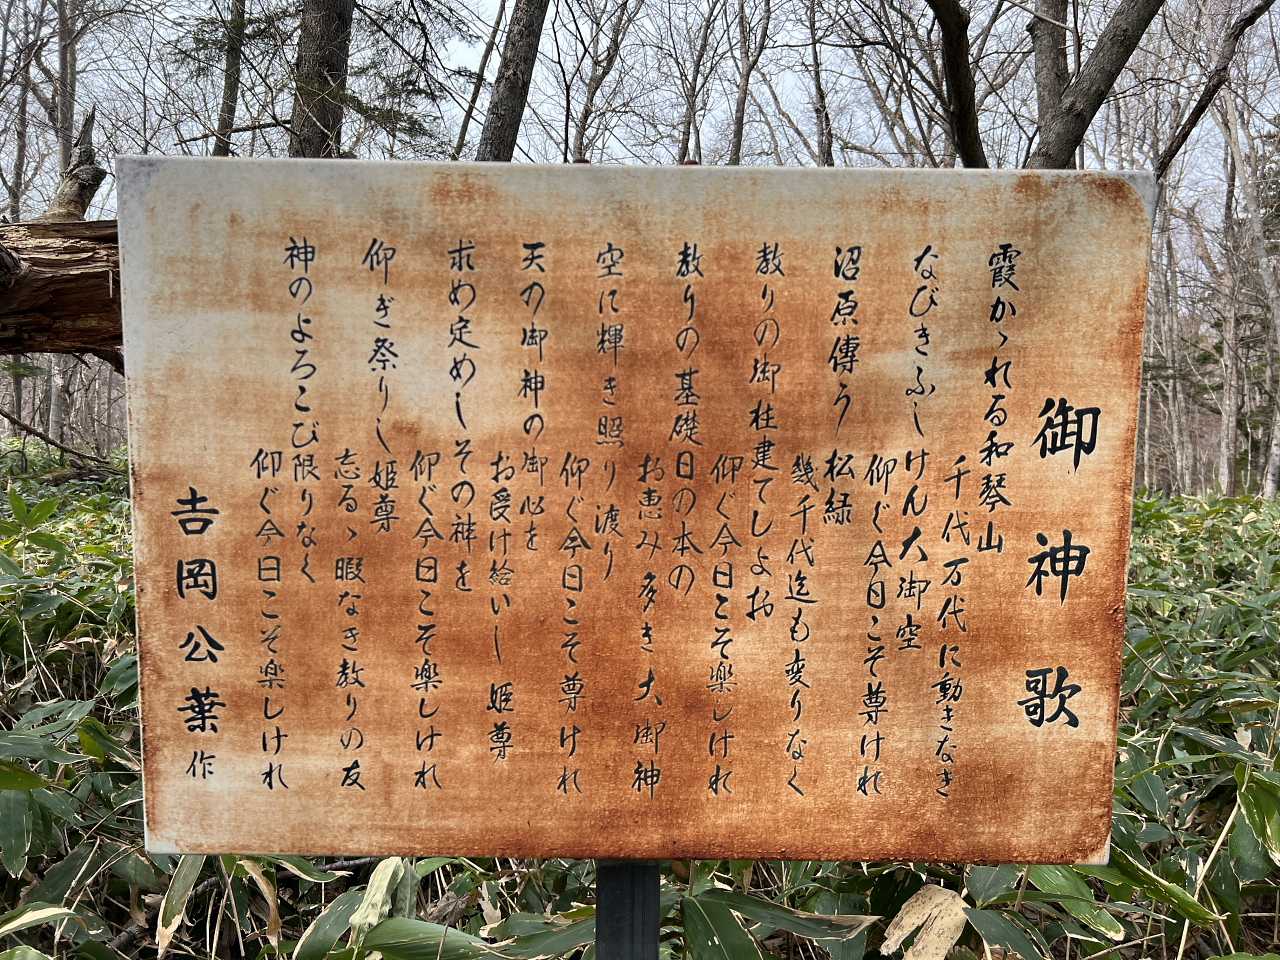 御神歌
霞かゝれる和琴山
千代万代に動きなき
なびきふしけん大御空
仰ぐ今日こそ尊けれ
沼原傳う松緑
幾千代迄も変りなく
教りの御柱建てしよお
仰ぐ今日こそ楽しけれ
教りの基礎日の本の
お恵み多き大御神
空に輝き照り渡り
仰ぐ今日こそ尊けれ
天の御神の御心を
お受け給いし姫尊
求め定めしその神を
仰ぐ今日こそ楽しけれ
仰ぎ祭りし姫尊
忘るゝ暇なき教りの友
神のよろこび限りなく
仰ぐ今日こそ楽しけれ
吉岡公葉作